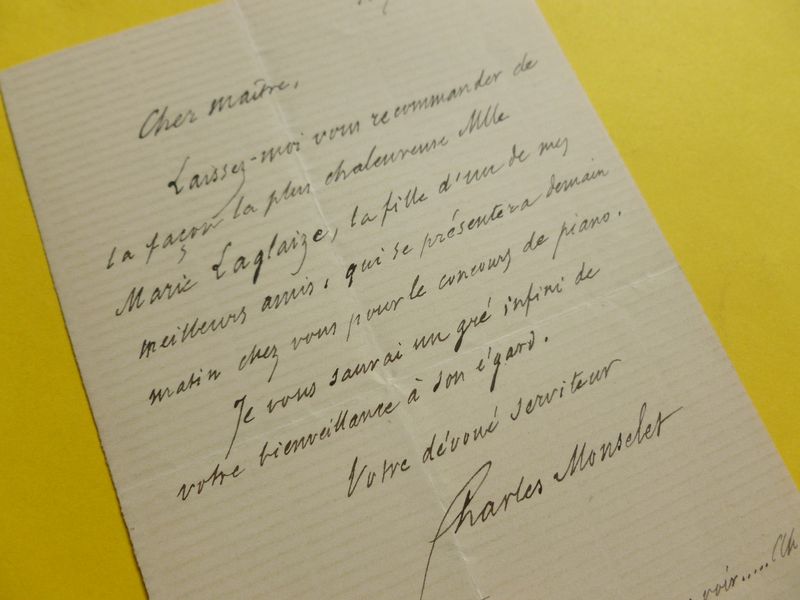 Cher maître,
Laissez-moi vous recommander de
la façon la plus chaleureuse Mlle
Marie Laglaize, la fille d'un de mes
meilleurs amis, qui se présentera demain
matin chez vous pour le concours de piano.
Je vous saurai un gré infini de
votre bienveillance à son égard.
Votre dévoué serviteur
Charles Monselet
voir.....